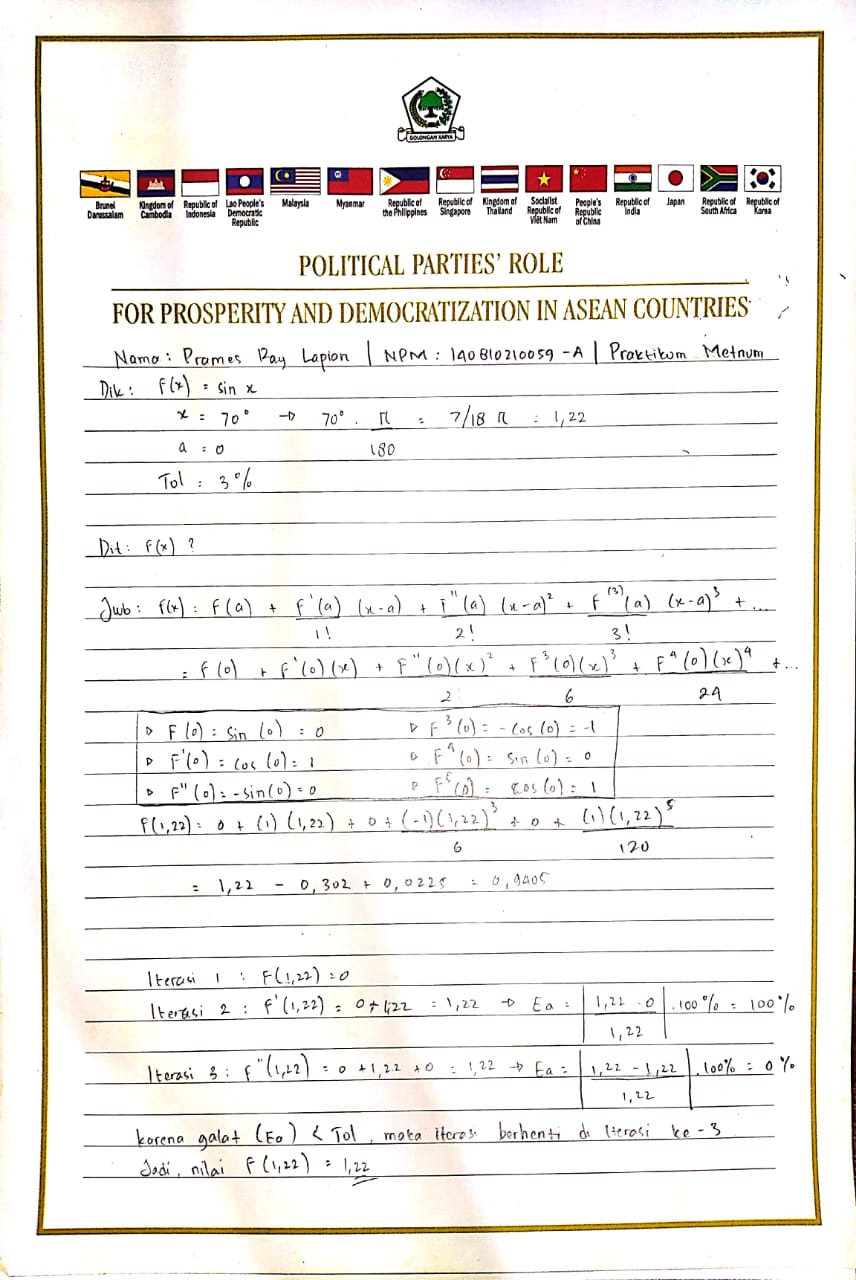 GOLONGAN KARYA
Brunei Darussalam
Kingdom of Cambodia
Republic of Indonesia
Lao People's Democratic Republic
Malaysia
Myanmar
Republic of the Philippines
Republic of Singapore
Kingdom of Thailand
Socialist Republic of Việt Nam
People's Republic of China
Republic of India
Japan
Republic of South Africa
Republic of Korea
POLITICAL PARTIES' ROLE
FOR PROSPERITY AND DEMOCRATIZATION IN ASEAN COUNTRIES
Nama : Prames Ray Lapian | NPM : 140810210059 - A | Praktikum Metnum
Dik : f(x) = sin x
x = 70° → 70° . π/180 = 7/18 π = 1,22
a = 0
Tol = 3%
Dit : f(x) ?
Jwb : f(x) = f(a) + f'(a)/1! (x-a) + f''(a)/2! (x-a)² + f⁽³⁾(a)/3! (x-a)³ + ...
= f(0) + f'(0)(x) + f''(0)(x)²/2 + f³(0)(x)³/6 + f⁴(0)(x)⁴/24 + ...
▷ f(0) = sin(0) = 0 ▷ f³(0) = -cos(0) = -1
▷ f'(0) = cos(0) = 1 ▷ f⁴(0) = sin(0) = 0
▷ f''(0) = -sin(0) = 0 ▷ f⁵(0) = cos(0) = 1
f(1,22) = 0 + (1)(1,22) + 0 + (-1)(1,22)³/6 + 0 + (1)(1,22)⁵/120
= 1,22 - 0,302 + 0,0225 = 0,9405
Iterasi 1 : f(1,22) = 0
Iterasi 2 : f'(1,22) = 0 + 1,22 = 1,22 → Ea = |1,22 - 0/1,22| . 100% = 100%
Iterasi 3 : f''(1,22) = 0 + 1,22 + 0 = 1,22 → Ea = |1,22 - 1,22/1,22| . 100% = 0%
karena galat (Ea) < Tol, maka iterasi berhenti di Iterasi ke-3
Jadi, nilai f(1,22) = 1,22